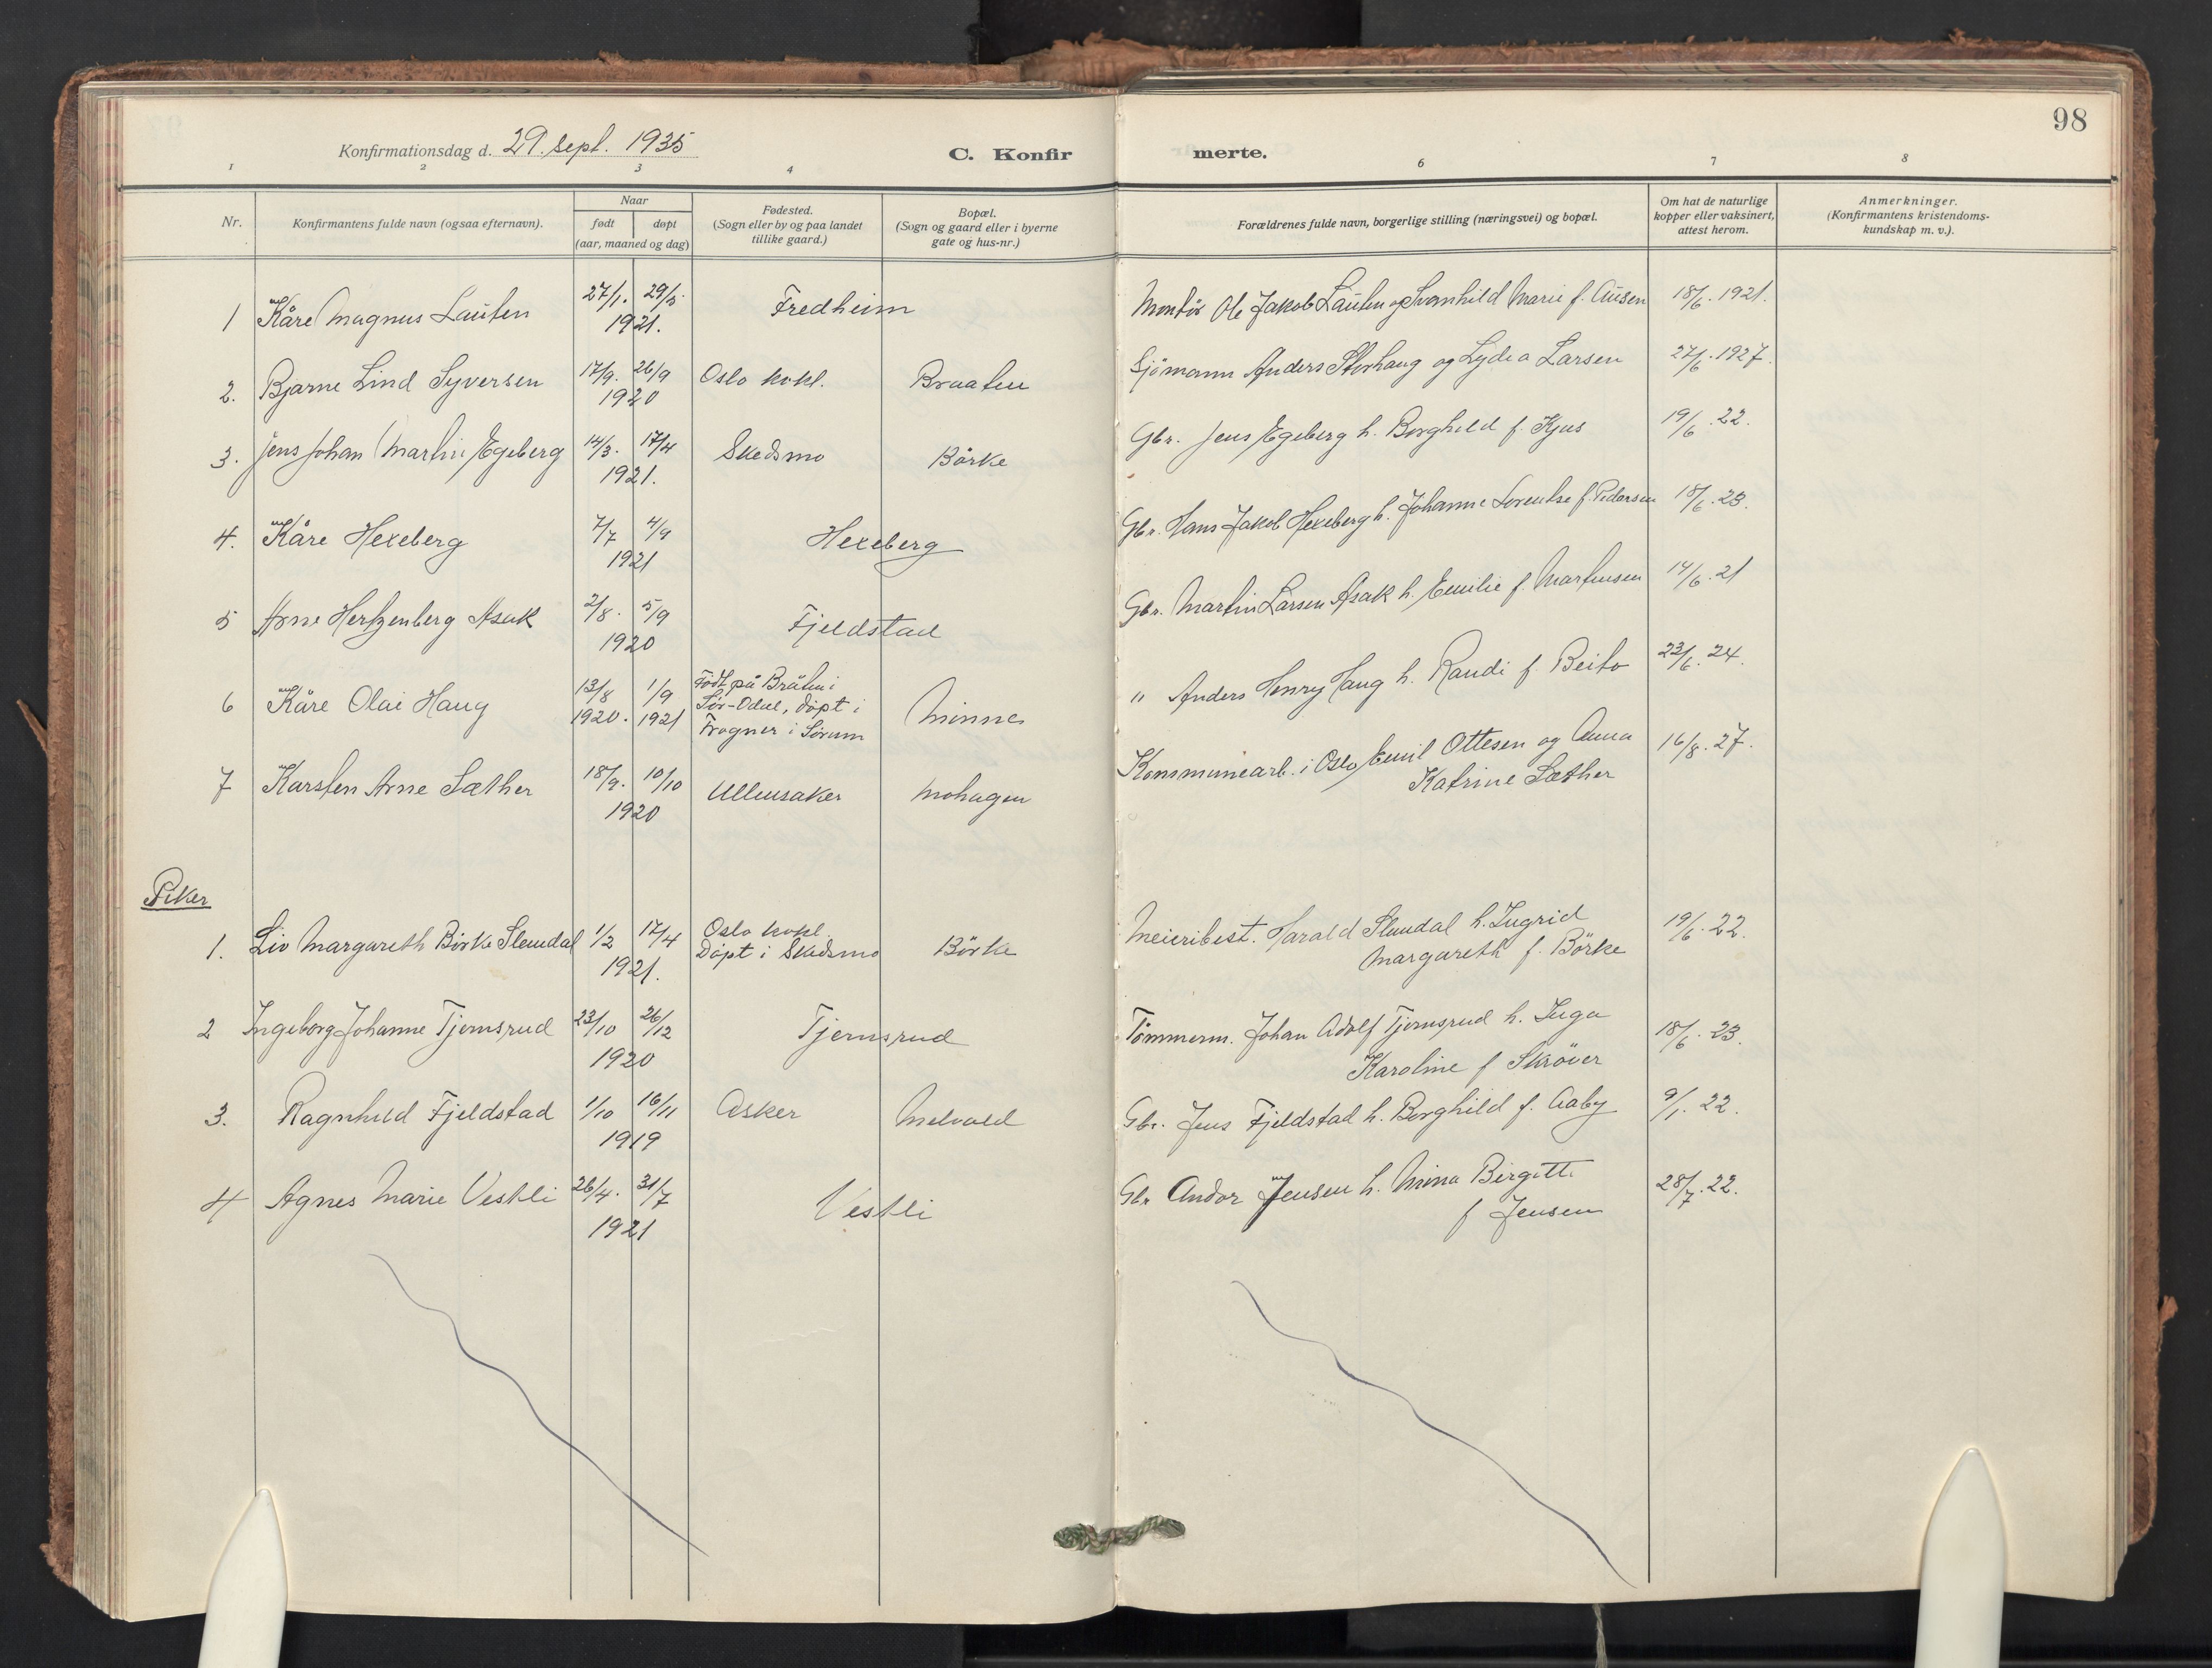 98
Konfirmationsdag d. 29. sept. 1935
C. Konfir
merte.
1 2 3 4 6 7 8
Nr.
Konfirmantens fulde navn (ogsaa efternavn).
Naar
født døpt
(aar, maaned og dag)
Fødested.
(Sogn eller by og paa landet
tillike gaard.)
Bopæl.
(Sogn og gaard eller i byerne
gate og hus-nr.)
Forældrenes fulde navn, borgerlige stilling (næringsvei) og bopæl.
Om hat de naturlige
kopper eller vaksinert,
attest herom.
Anmerkninger.
(Konfirmantens kristendoms-
kundskap m. v.).
1 Kåre Magnus Lauten 27/1. 29/5. 1921. Fredheim Montør Ole Jakob Lauten og Svanhild Marie f. Ausen 18/6. 1921.
2. Bjarne Lind Syversen 17/9. 26/9 1920 Oslo kvkl. Braaten Sjömann Anders Storhaug og Lydia Larsen 27/6. 1927.
3. Jens Johan Martin Egeberg 14/3. 17/4 1921. Skedsmo Börke Gbr. Jens Egeberg h. Borghild f. Kjus 19/6. 22.
4. Kåre Hexeberg 7/7 4/9 1921 Hexeberg Gbr. Hans Jakob Hexeberg h. Johanne Lorentse f. Pedersen 18/6. 23.
5 Arne Hertzenberg Asak 2/8. 5/9 1920 Fjeldstad Gbr. Martin Larsen Asak h. Emilie f. Martinsen 14/6. 21
6 Kåre Olai Haug 13/8 1920. 1/9 1921 Född på Bråten i
Sör-Odal, döpt i
Frogner i Sörum Minne " Anders Henry Haug h. Randi f. Beito 23/6. 24.
7 Karsten Arne Sæther 18/9. 10/10 1920 Ullensaker Mohagen Kommunearb. i Oslo Emil Ottesen og Anna
Katrine Sæther 16/8. 27.
Piker
1. Liv Margareth Börke Slemdal 1/2 17/4 1921. Oslo kvkl.
Döpt i Skedsmo Börke Meieribest. Harald Slemdal h. Ingrid
Margareth f. Börke 19/6. 22.
2 Ingeborg Johanne Tjernsrud 23/10 26/12 1920 Tjernsrud Tömmerm. Johan Adolf Tjernsrud h. Inga
Karoline f Skröver 18/6. 23.
3. Ragnhild Fjeldstad 1/10 16/11 1919 Asker Melvold Gbr. Jens Fjeldstad h. Borghild f. Aaby 9/1. 22.
4 Agnes Marie Vestli 26/4. 31/7 1921 Vestli Gbr Andor Jensen h. Mina Birgitte
f Jensen 28/7. 22.